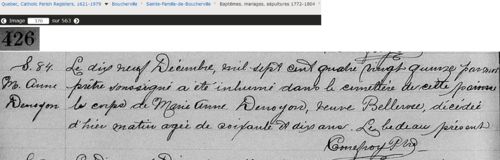 Quebec, Catholic Parish Registers, 1621-1979 Boucherville Sainte-Famille-de-Boucherville Baptêmes, mariages, sépultures 1772-1804
Image sur 563
426
S. 84. Le dix neuf Décembre, mil sept cent quatre vingt quinze par moi
M. Anne prêtre soussigné a été inhumé dans le cimetière de cette paroisse
Denoyon le corps de Marie Anne Denoyon, veuve Bellerose, décédée
d'hier matin agée de soixante & dix ans. Le bedeau présent
Conefroy Ptre